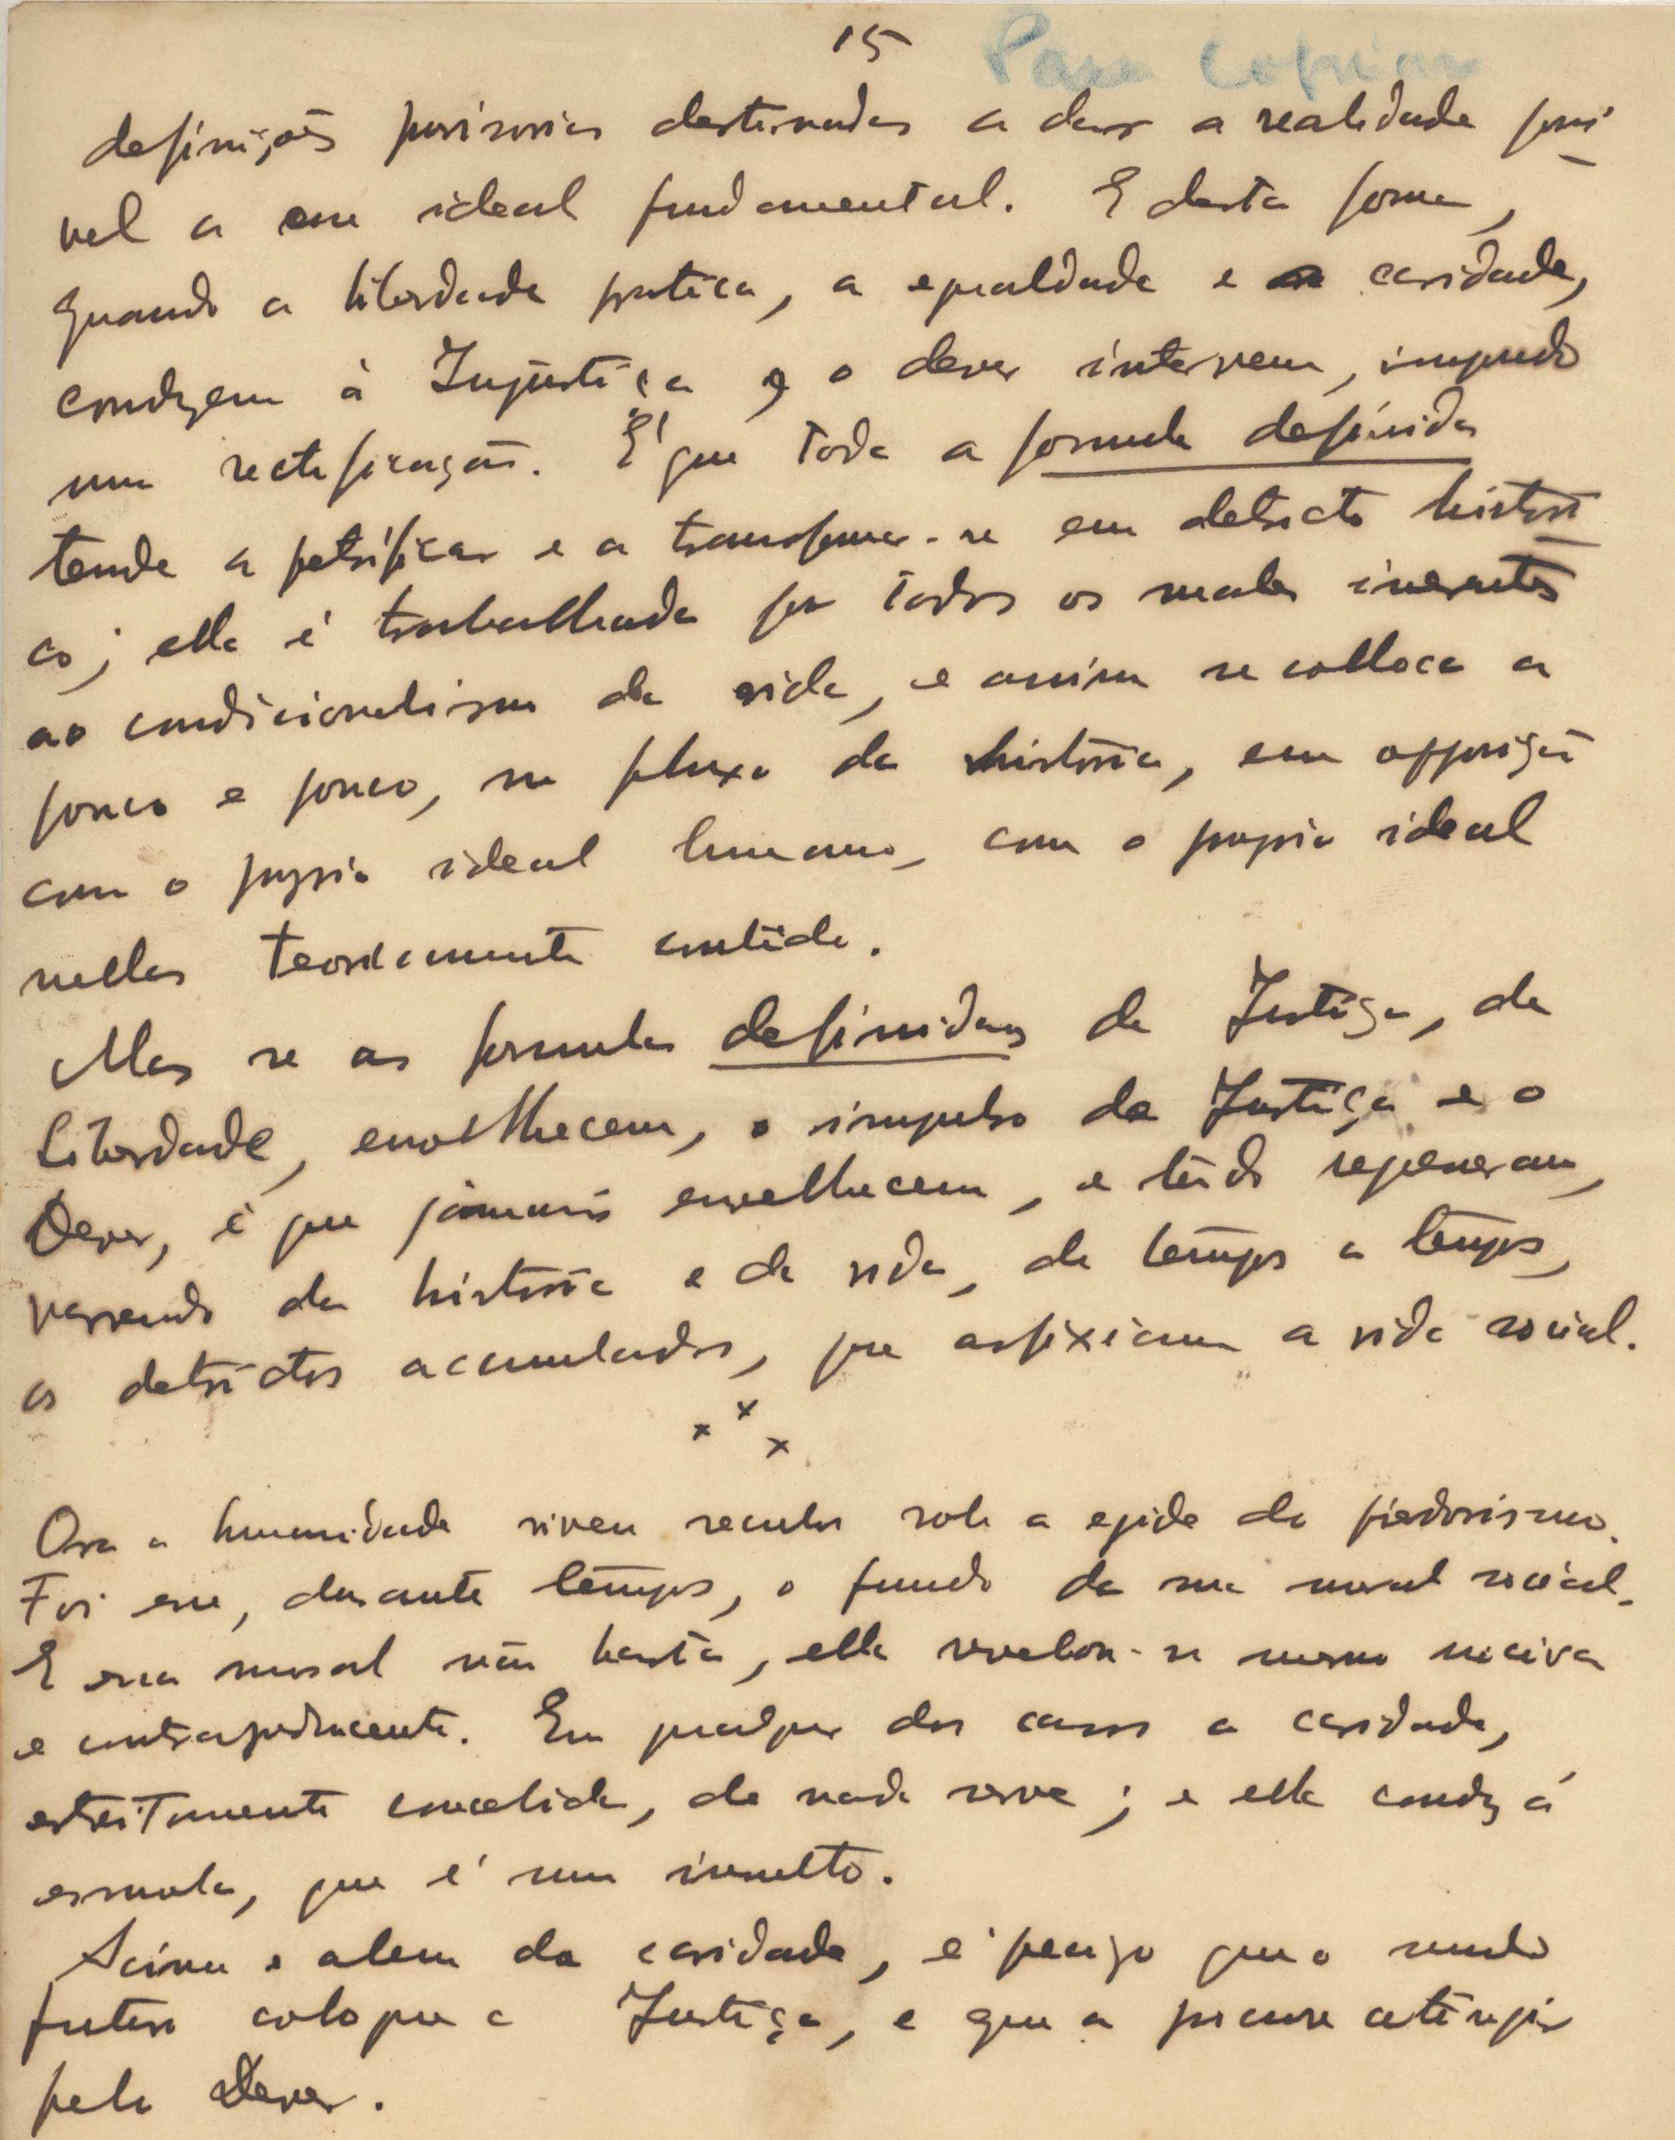 15 Para copiar
definições provisorias destinadas a dar a realidade possi
vel a esse ideal fundamental. E desta forma,
quando a liberdade pratica, a egualdade e a caridade,
conduzem á Injustiça, o dever intervem, impondo
uma rectificação. É que toda a formula definida
tende a petrificar e a transformar-se em detricto histori
co; ella é trabalhada por todos os males inerentes
ao condicionalismo da vida, e assim se colloca a
pouco e pouco, no fluxo da historia, em opposição
com o proprio ideal humano, com o proprio ideal
nellas teoricamente contido.
Mas se as formulas definidas da Justiça, da
Liberdade, envelhecem, o impulso da Justiça e o
Dever, é que jámais envelhecem, e tudo regeneram,
varrendo da historia e da vida, de tempos a tempos,
os detrictos accumulados, que asfixiam a vida social.
x x x
Ora a humanidade viveu seculos sob a egide do piedosismo.
Foi esse, durante tempos, o fundo da sua moral social.
E essa moral não basta, ella revelou-se mesmo nociva
e contraproducente. Em qualquer dos casos a caridade,
estreitamente concebida, de nada serve; e ella conduz á
esmola, que é um insulto.
Acima e alem da caridade, é preciso que o mundo
futuro coloque a Justiça, e que a procure atingir
pelo Dever.